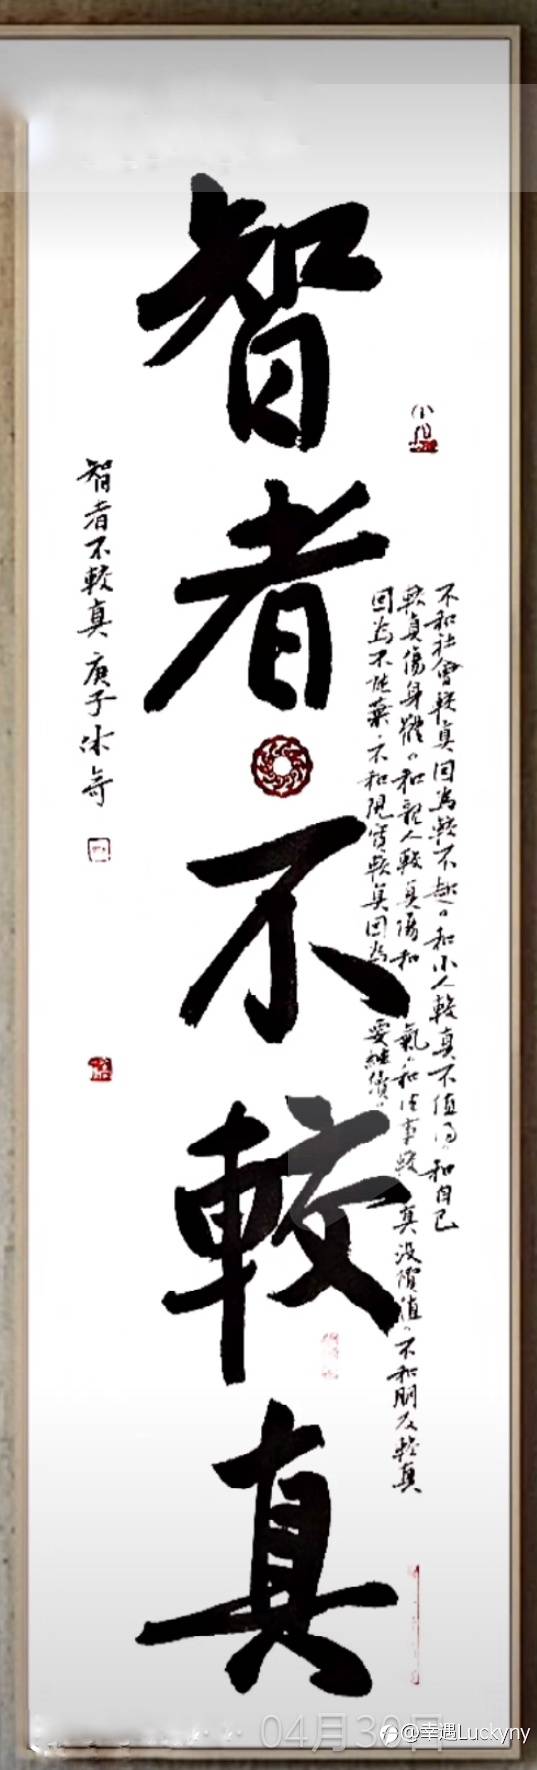 智者不較真
不和社會較真因為較不起。和小人較真不值得。和自己
較真傷身體。和親人較真傷和氣。和往事較真沒價值。不和朋友較真
因為不能棄。不和現實較真因為要繼續。
智者不較真 庚子
04月30日
@幸遇Luckyny